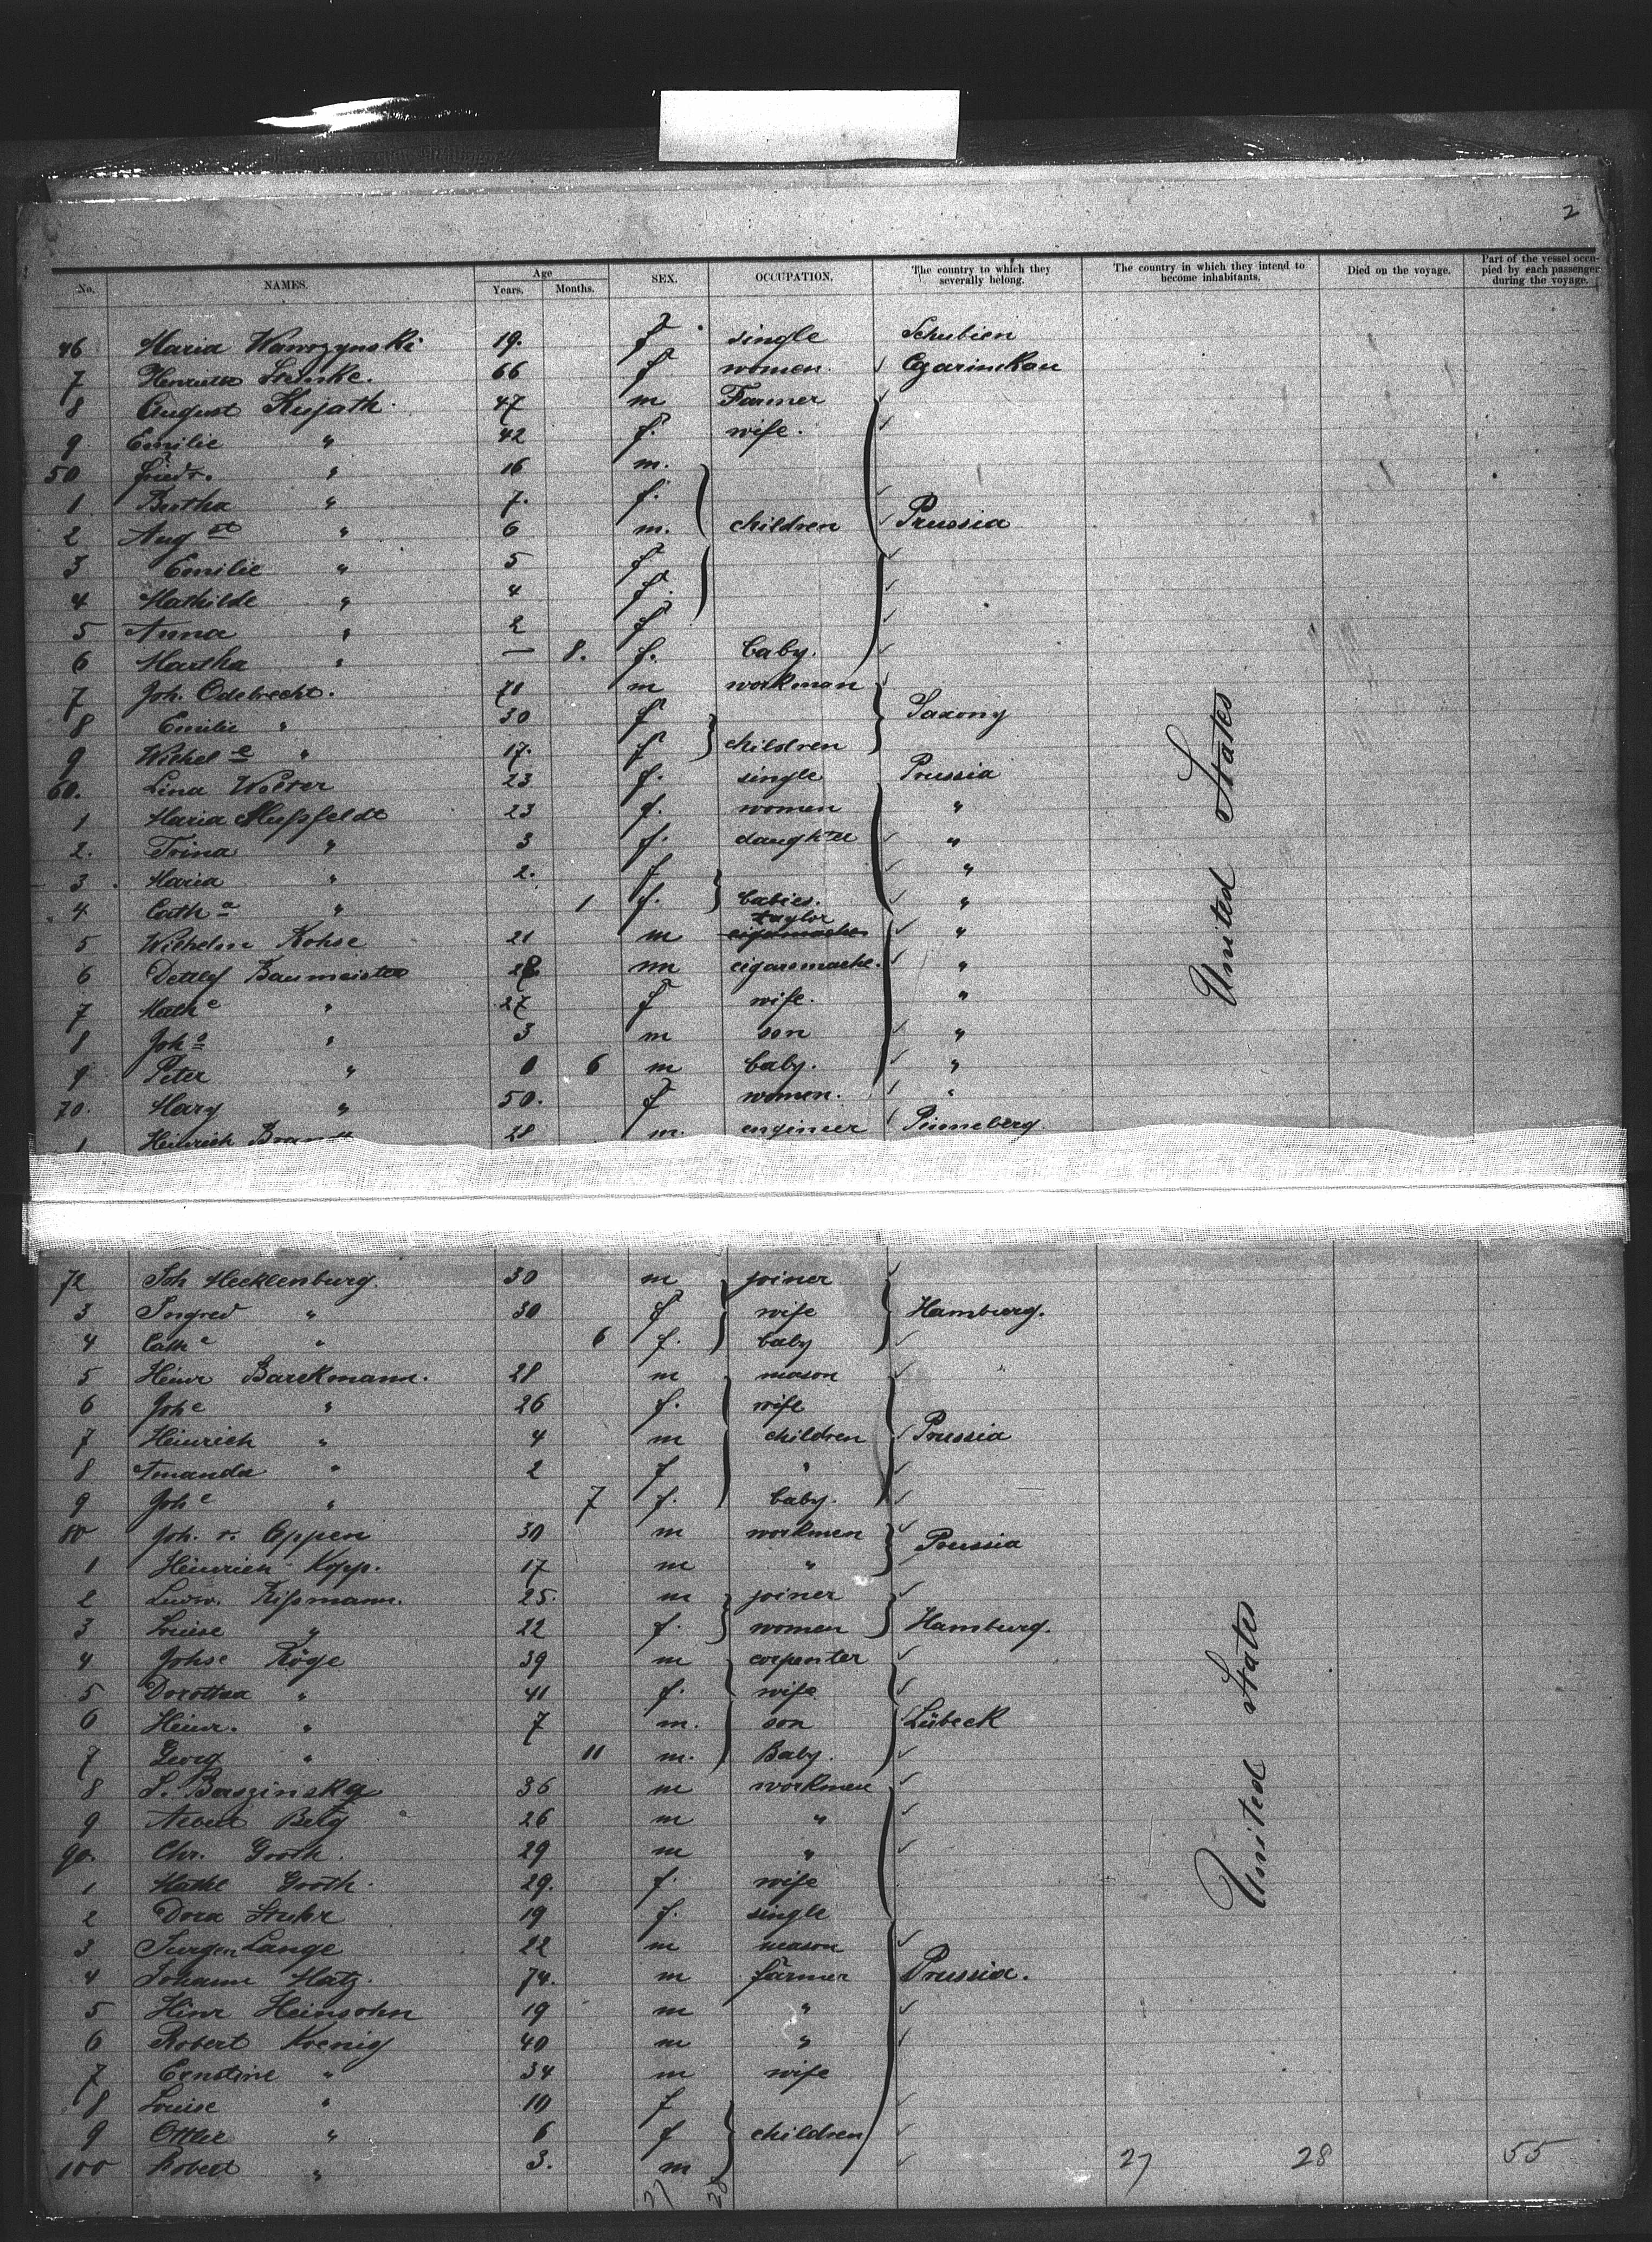 2
No. NAMES. Age Years. Months. SEX. OCCUPATION. The country to which they severally belong. The country in which they intend to become inhabitants. Died on the voyage. Part of the vessel occupied by each passenger during the voyage.
46 Maria Wawrzynski 19. f single Schubien
7 Henriette 66 f women. Czarinkau
8 August Kujath 47 m Farmer
9 Emilie " 42 f. wife.
50 Friedr. " 16 m.
1 Bertha " 7. f.
2 Aug st " 6 m. children Prussia
3 Emilie " 5 f
4 Mathilde " 4 f.
5 Anna " 2 f
6 Martha " — 8. f. baby.
7 Joh. Odebrecht. 71 m workman
8 Emilie " 30 f Saxony
9 Wilhel e " 17. f children
60. Lina Wolter 23 f. single Prussia
1 Maria 23 f. women "
2. Trina " 3 f. daughter "
3 Maria " 2. f "
4 Cath a " 1 f. babies. "
5 Wilhelm Kohse 21 m taylor "
6 Detlef Baumeister 28 m cigarsmache. "
7 Math e " 27 f wife. "
8 Joh s " 3 m son "
9 Peter " 0 6 m baby. "
70. Mary " 50. f women. "
1 Heinrich Brandt 28 m. engineer Pinneberg
United States
72 Joh Mecklenburg. 30 m joiner
3 Ingred " 30 f wife Hamburg.
4 Cath e " 6 f. baby
5 Heinr Barckmann. 28 m mason
6 Joh e " 26 f. wife
7 Heinrich " 4 m children Prussia
8 Amanda " 2 f "
9 Joh e " 7 f. baby.
80 Joh. v. Eppen 30 m workmen Prussia
1 Heinrich Kopp. 17 m "
2 Ludw. Kißmann. 25. m joiner
3 Louise " 22 f. women Hamburg.
4 Johs Köge 39 m corpenter
5 Dorothea " 41 f. wife
6 Heinr. " 7 m. son Lübeck
7 Georg " 11 m. Baby.
8 S. Baszinsky 36 m workmen
9 Albert 26 m "
90. Chr. Groth. 29 m "
1 Math Groth. 29. f. wife
2 Dora Stuhr 19 f. single
3 Jurgen Lange 22 m mason
4 Johann Matz. 74. m farmer Prussia.
5 Hinr Heinsohn 19 m "
6 Robert Koenig 40 m "
7 Ernstine " 34 m wife
8 Louise " 10 f
9 Ottilie " 6 f children
100 Robert " 3. m
United States
27 28 55
27 28